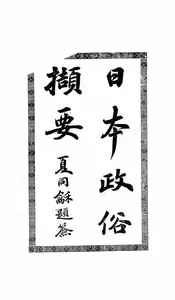 日本政俗
擷要
夏同龢題簽